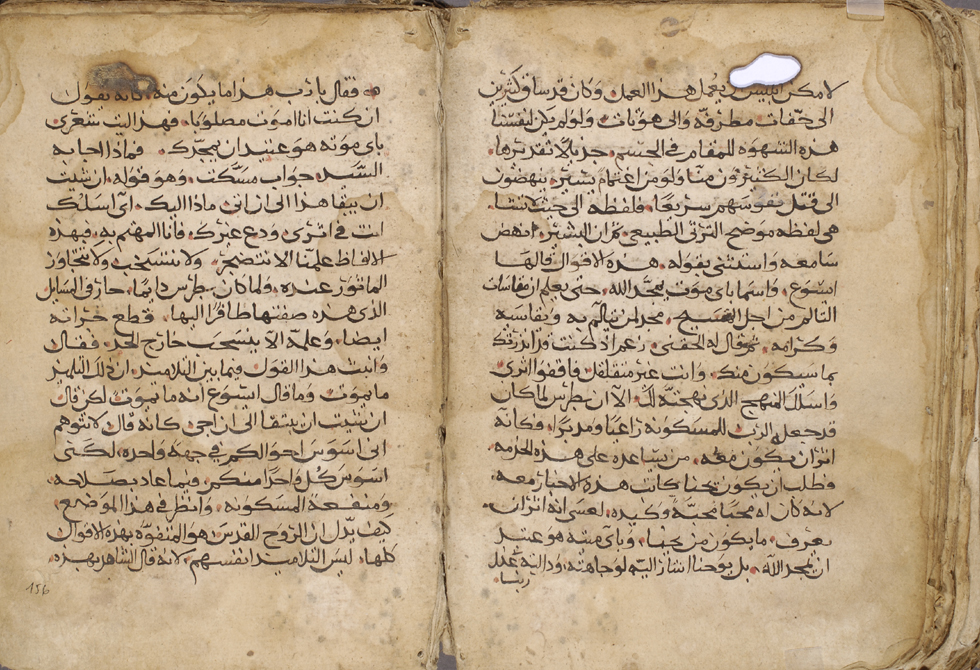 لا مكن ابليس يعمل هذا العمل وكان قد ساق كثيرين
الى خفات مطرفه والى هوتات ولو لم يكن لنفسنا
هذه الشهوه للمقام في الجسم جذبا لا تقديرها
لكان الكثيرون منا ولو من اغتمام يسير ينهضون
الى قتل نفوسهم سريعا فلفظه الى حيث لا تشا
هي لفظه موضح الترتي الطبيعي ثم ان البشير انهض
سامعه واستثنى بقوله هذه الاقوال قالها
ايسوع واسما باي موت يمجد الله حتى يعلم ان مقاسات
التالم من اجل المسيح مجد لمن يتالم به ونفاسه
وكرامه ثم قال له الحقني زعم اذ كنت قد انذرتك
بما سيكون منك وانت غير متقلقل فاقفوا اثري
واسلك المنهج الذي نهجته لك الا ان بطرس لما كان
قد جعل الرب للمسكونه راعيا ومدبرا وكانه
اثر ان يكون معه من يساعده على هذه الخدمه
وطلب ان يكون يحنا كانت هذه الاخبار معه
لانه كان له محبا محبة وكيده لعسى انه اثر ان
يعرف ما يكون من يحنا وباي ميته هو عتيد
ان يمجد الله بل يوحنا اشار اليه لوجاهته ودالته عند
ربنا
فقال يا رب هذا ما يكون منه كانه يقول
ان كنت انا اموت مصلوبا فهذا ليت شعري
باي موته هو عتيد ان يمجدك فماذا اجابه
السيد جواب مسكت وهو قوله ان شيت
ان يبقا هذا الى ان اتي ماذا اليك اي اسلك
انت في اثري ودع غيرك فانا المهتم به فبهذه
الالفاظ علمنا الا نتضجر ولا نتسخب ولا نتجاوز
الماثور عنده ولما كان بطرس دايما حار في المسايل
الذي هذه صفتها طافرا اليها قطع حرانه
ايضا وعلمه الا ينسحب خارج الحد فقال
وانبث هذا القول فيما بين التلاميذ ان ذلك التلميذ
ما يموت وما قال ايسوع انه ما يموت لكن قال
ان شيت ان يبقا الى ان اجي كانه قال لا تتوهم
اني اسوس احوالكم في جهة واحده لكني
اسوس كل واحد منكم فيما عاد بصلاحه
ومنفعة المسكونه وانظر في هذا الموضع
كيف يدل ان الروح القدس هو المتفوه بهذه الاقوال
كلها ليس التلاميذ انفسهم لانه قال الشاهد بهذه
156